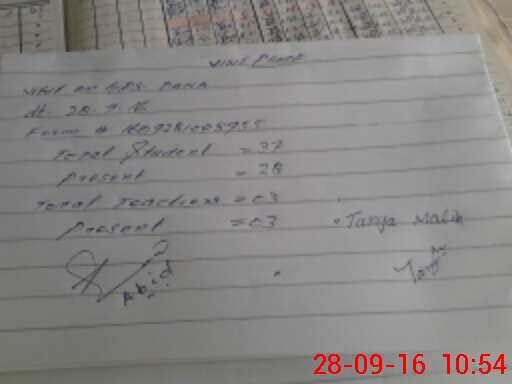 Visit Proof
Visit on GPS.
dt. 28.9.16
Form # 1609281008955
Total Student = 37
Present = 28
Total Teachers = 03
Present = 03
Tanya Malik
Abid
28-09-16 10:54